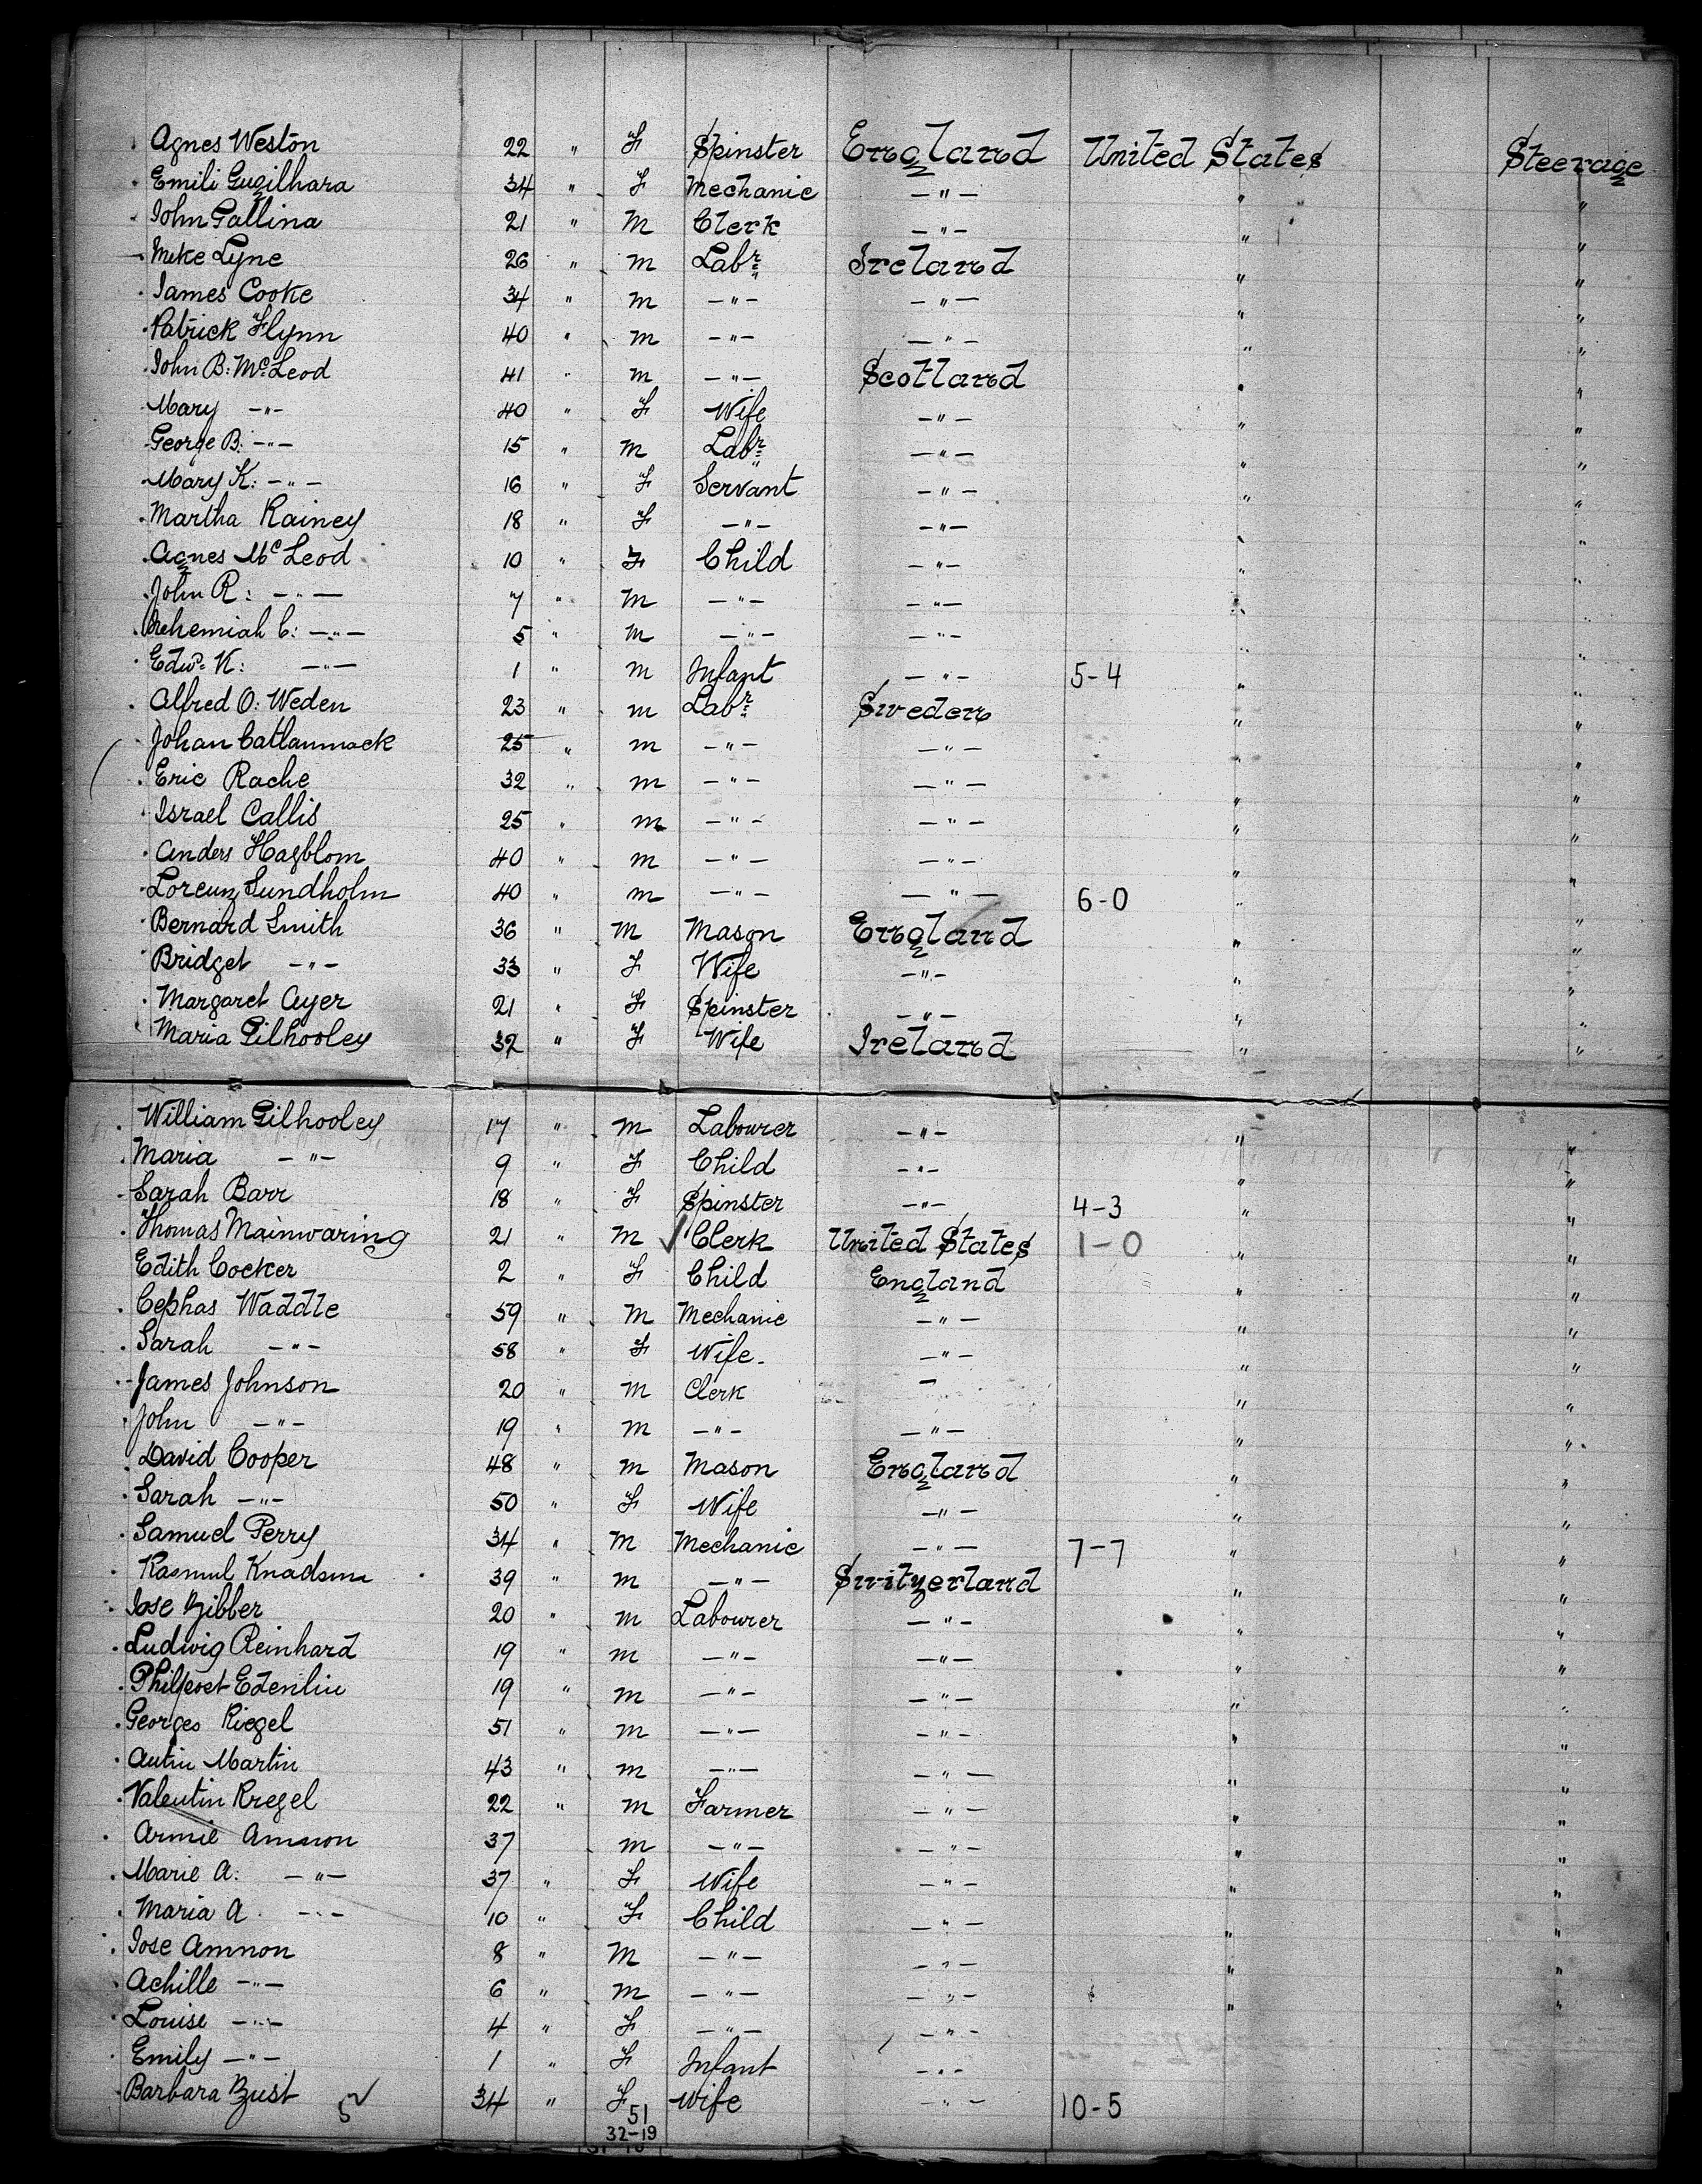 Agnes Weston 22 " F Spinster England United States Steerage
Emili Gugilhara 34 " F Mechanic — " — " "
John Gallina 21 " M Clerk — " — " "
Mike Lyne 26 " M Labr Ireland " "
James Cooke 34 " M — " — — " — " "
Patrick Flynn 40 " M — " — — " — " "
John B: McLeod 41 " M — " — Scotland " "
Mary — " — 40 " F Wife — " — " "
George B: — " — 15 " M Labr — " — " "
Mary K: — " — 16 " F Servant — " — " "
Martha Rainey 18 " F — " — — " — " "
Agnes McLeod 10 " F Child — " — " "
John R: — " — 7 " M — " — — " — " "
Nehemiah C: — " — 5 " M — " — — " — " "
Edwd K: — " — 1 " M Infant — " — 5-4 " "
Alfred O: Weden 23 " M Labr Sweden " "
Johan 25 " M — " — — " — " "
Eric Rache 32 " M — " — — " — " "
Israel Callis 25 " M — " — — " — " "
Anders Hagblom 40 " M — " — — " — " "
Loreunz Sundholm 40 " M — " — — " — 6-0 " "
Bernard Smith 36 " M Mason England " "
Bridget — " — 33 " F Wife — " — " "
Margaret Ayer 21 " F Spinster — " — " "
Maria Gilhooley 32 " F Wife Ireland " "
William Gilhooley 17 " M Labourer — " — " "
Maria — " — 9 " F Child — " — " "
Sarah Barr 18 " F Spinster — " — 4-3 " "
Thomas Mainwaring 21 " M ✓ Clerk United States 1-0 " "
Edith Cocker 2 " F Child England " "
Cephas Waddle 59 " M Mechanic — " — " "
Sarah — " — 58 " F Wife — " — " "
James Johnson 20 " M Clerk — " "
John — " — 19 " M — " — — " — " "
David Cooper 48 " M Mason England " "
Sarah — " — 50 " F Wife — " — " "
Samuel Perry 34 " M Mechanic — " — 7-7 " "
Knadsen 39 " M — " — Switzerland " "
Jose Zibber 20 " M Labourer — " — " "
Ludwig Reinhard 19 " M — " — — " — " "
19 " M — " — — " — " "
Georges Riegel 51 " M — " — — " — " "
Autin Martin 43 " M — " — — " — " "
Valentin Kregel 22 " M Farmer — " — " "
Armie Amnon 37 M — " — — " — " "
Marie A: — " — 37 " F Wife — " — " "
Maria A. — " — 10 " F Child — " — " "
Jose Amnon 8 " M — " — — " — " "
Achille — " — 6 " M — " — — " — " "
Louise — " — 4 " F — " — — " —
Emily — " — 1 " F Infant — " —
Barbara Zust 34 " F Wife — " — 10-5
51
32-19